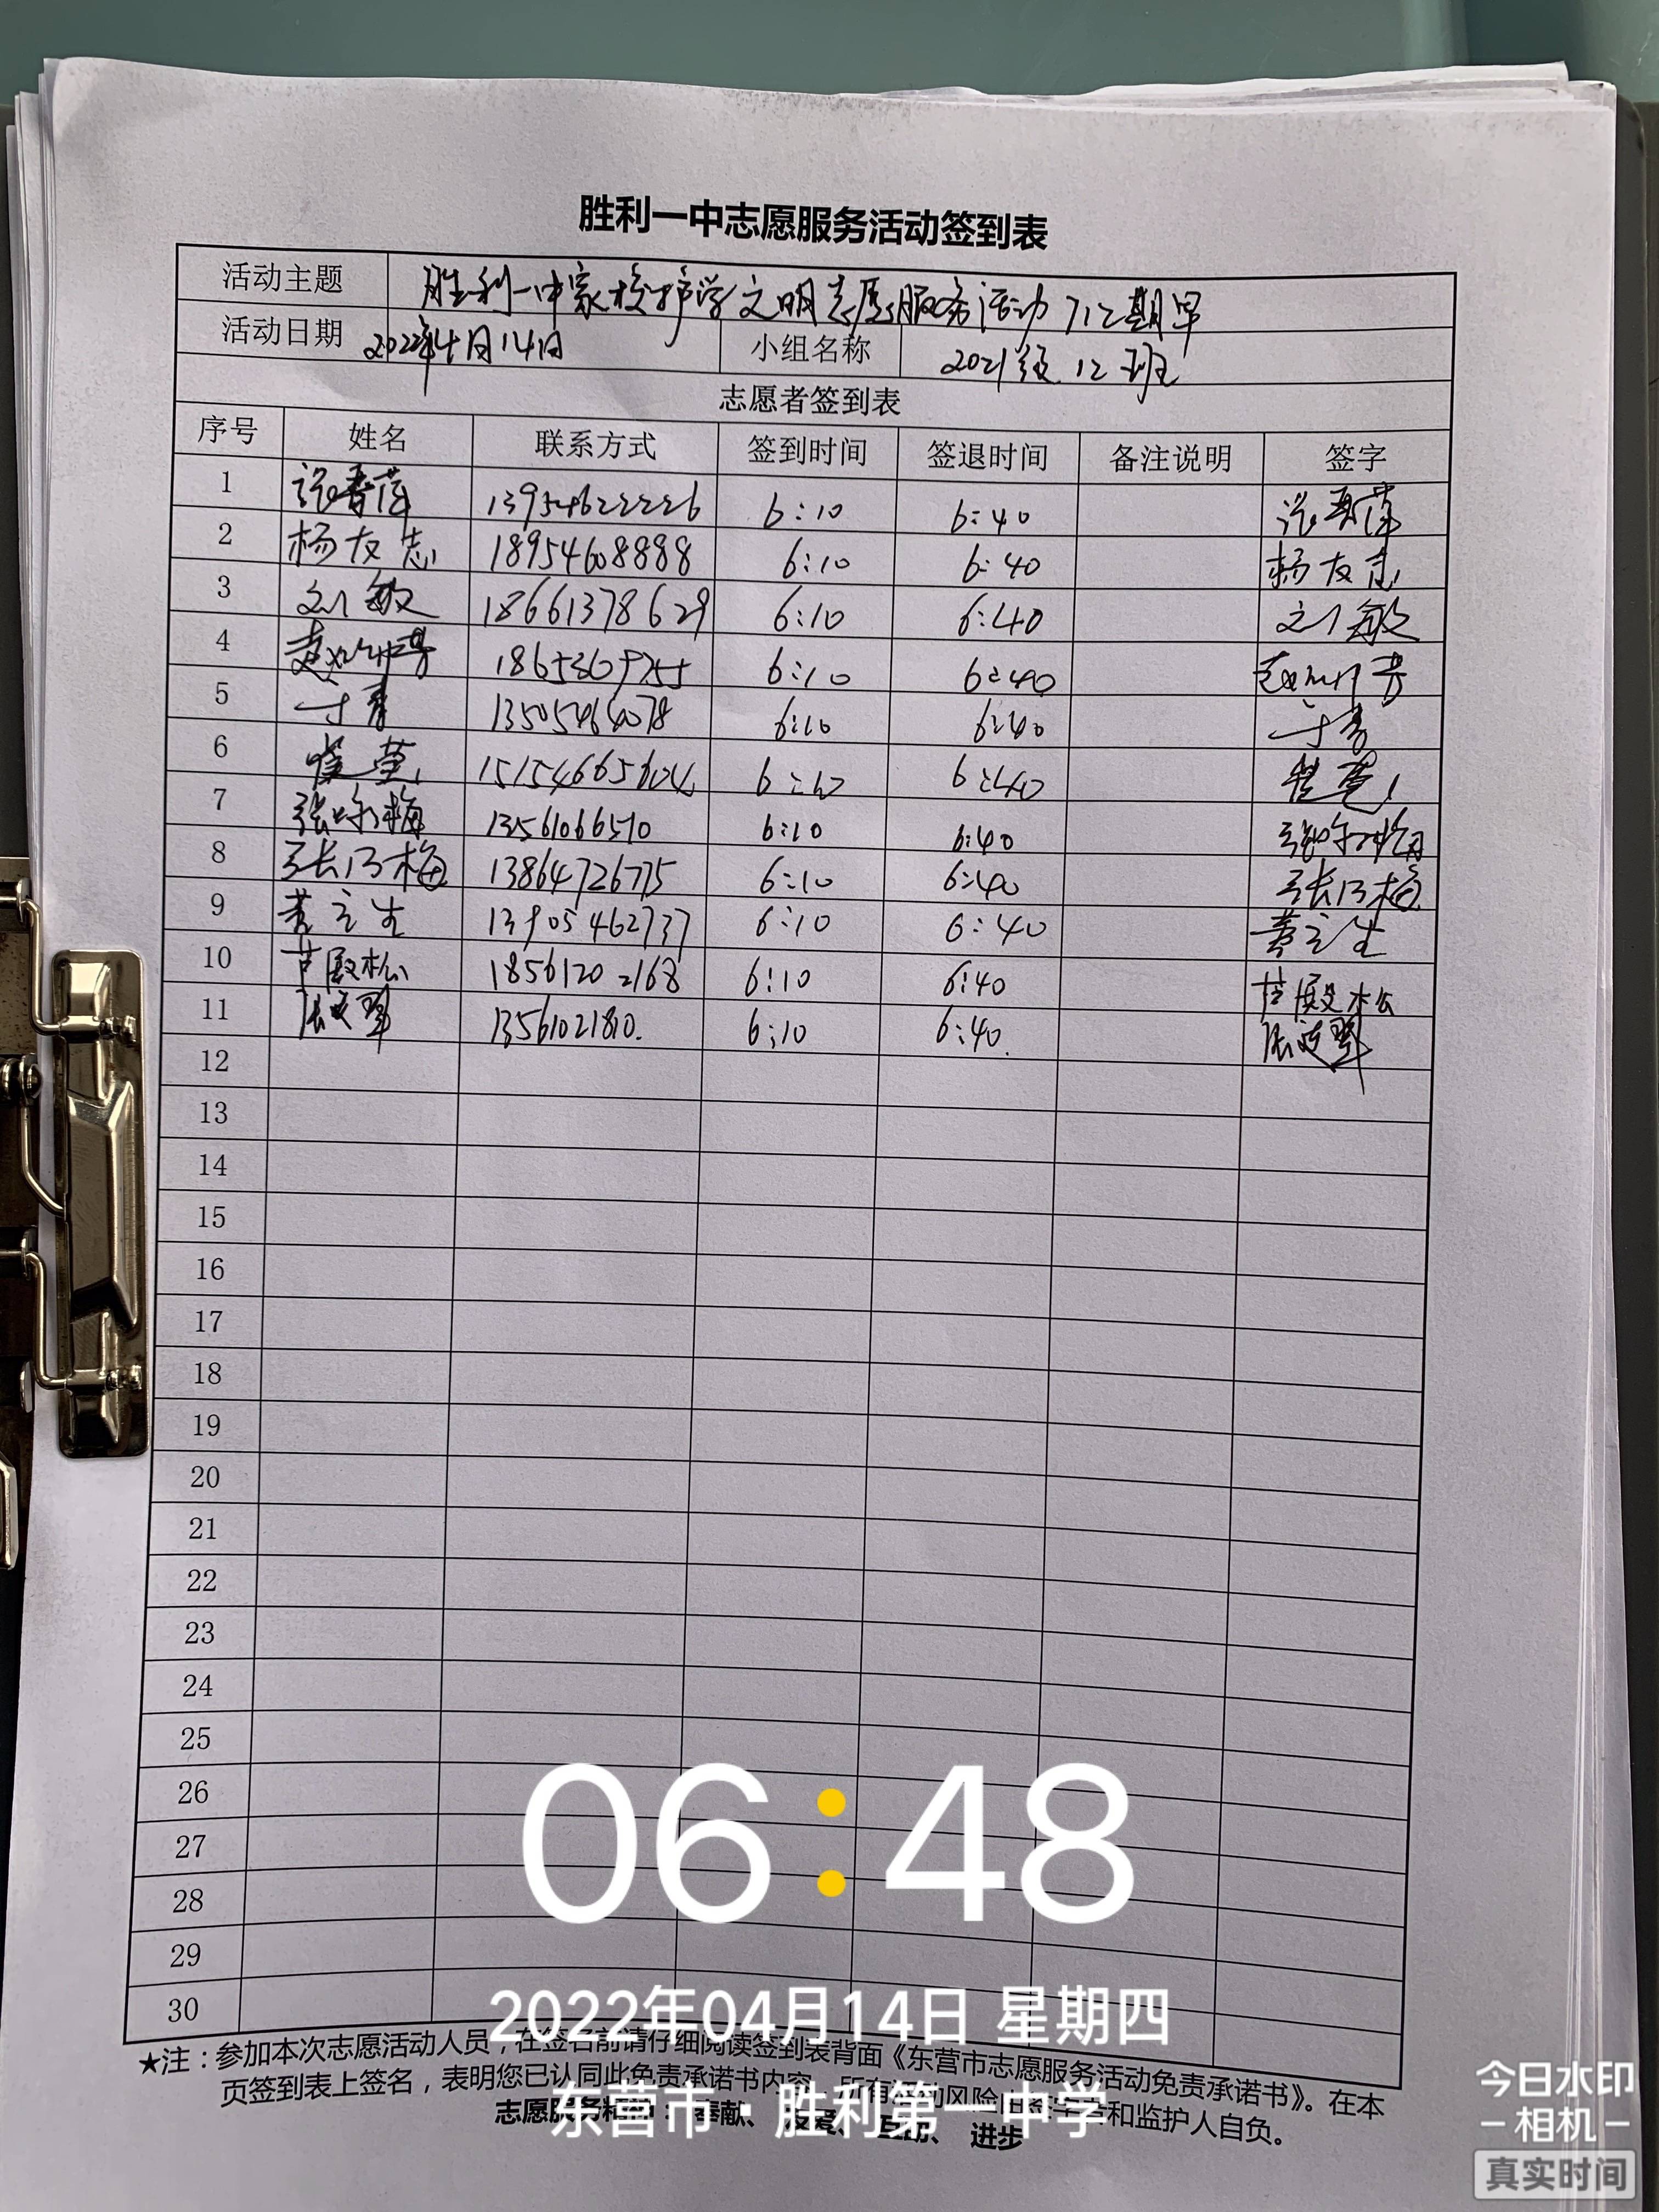 胜利一中志愿服务活动签到表
活动主题 胜利一中家校护学文明志愿服务活动 712期早
活动日期 2022年4月14日 小组名称 2021级 12班
志愿者签到表
序号 姓名 联系方式 签到时间 签退时间 备注说明 签字
1 13954622226 6:10 6:40
2 杨友志 18954608888 6:10 6:40 杨友志
3 刘敏 18661378629 6:10 6:40 刘敏
4 6:10 6:40
5 13505464078 6:10 6:40
6 6:10 6:40
7 13561066510 6:10 6:40
8 张乃梅 13864726775 6:10 6:40 张乃梅
9 13905462737 6:10 6:40
10 芦殿松 18561202168 6:10 6:40 芦殿松
11 13561021810. 6:10 6:40.
12
13
14
15
16
17
18
19
20
21
22
23
24
25
26
27
28
29
30
06:48
2022年04月14日 星期四
★注：参加本次志愿活动人员，在签名前请仔细阅读签到表背面《东营市志愿服务活动免责承诺书》。在本
页签到表上签名，表明您已认同此免责承诺书内容，所有活动风险由签字者和监护人自负。
东营市·胜利第一中学
志愿服务精神：奉献、友爱、互助、进步
今日水印
相机
真实时间